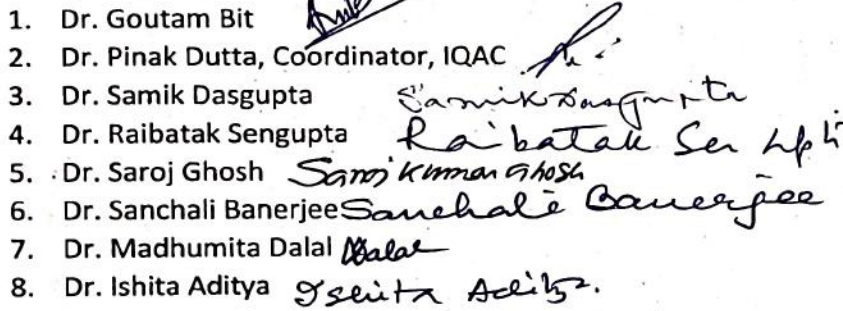 1. Dr. Goutam Bit
2. Dr. Pinak Dutta, Coordinator, IQAC
3. Dr. Samik Dasgupta Samik Dasgupta
4. Dr. Raibatak Sengupta Raibatak Sen
5. Dr. Saroj Ghosh Saroj Kumar Ghosh
6. Dr. Sanchali Banerjee Sanchali Banerjee
7. Dr. Madhumita Dalal Dalal
8. Dr. Ishita Aditya Ishita Aditya.